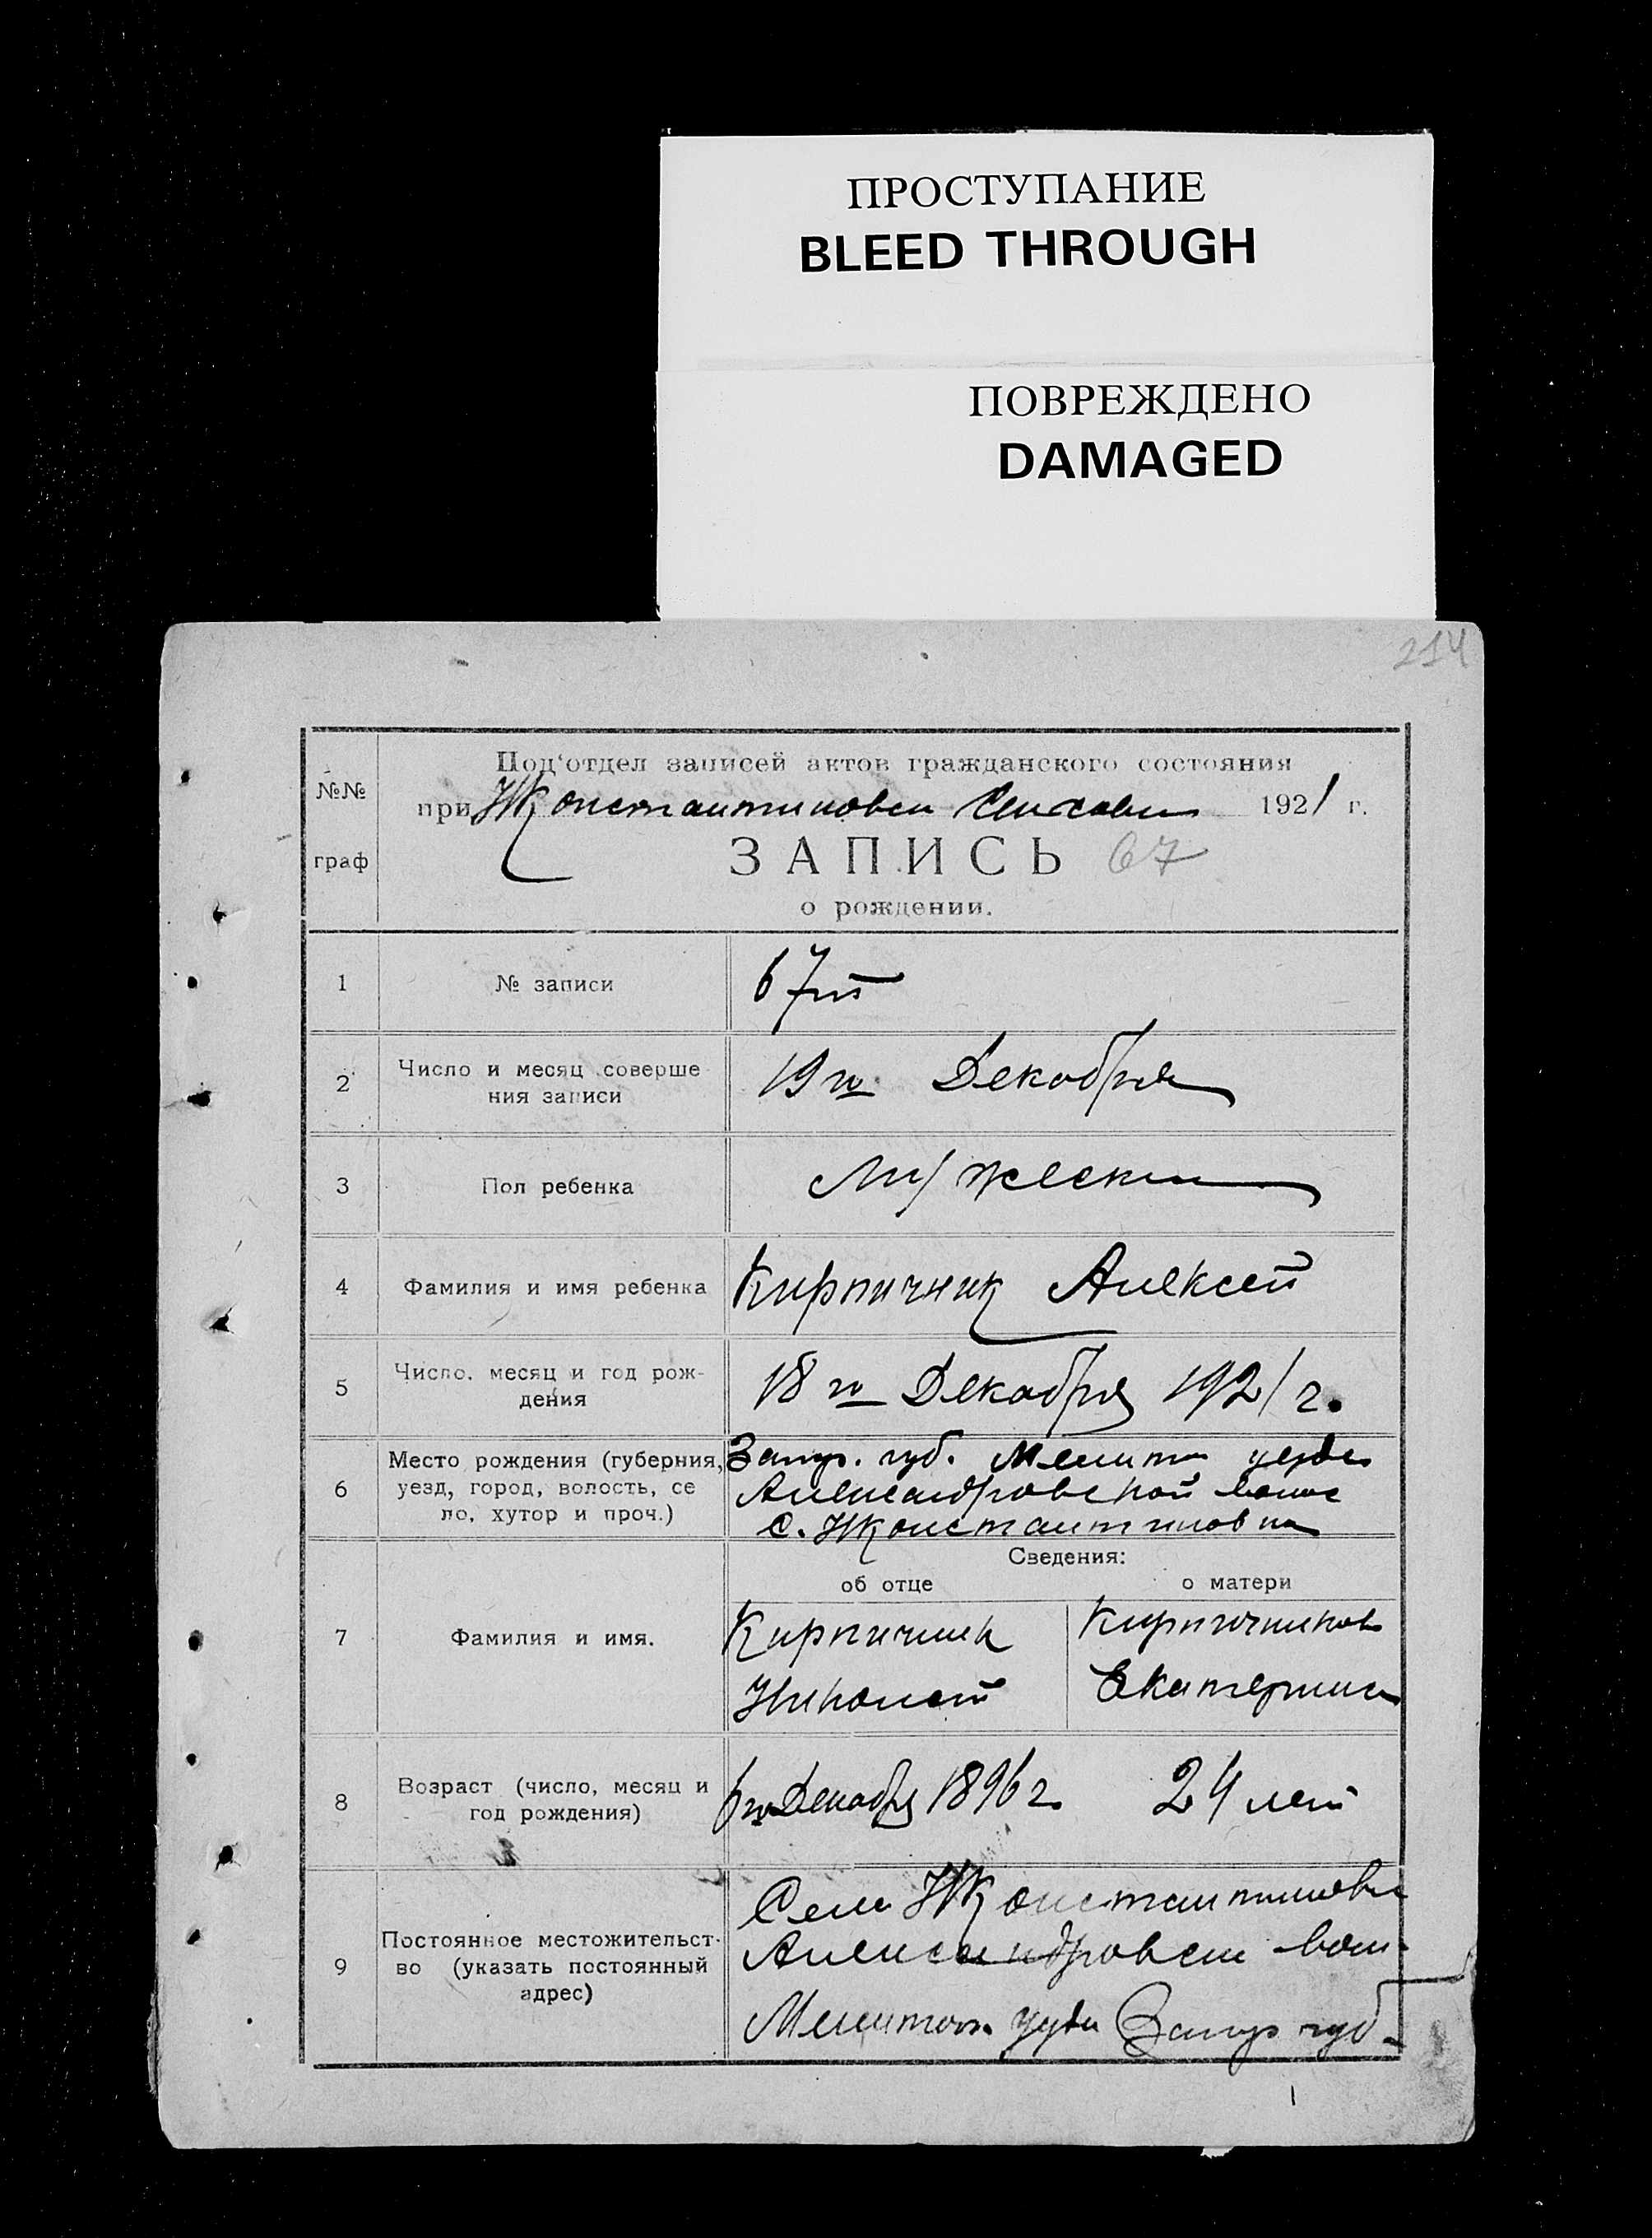 ПРОСТУПАНИЕ
BLEED THROUGH
ПОВРЕЖДЕНО
DAMAGED
214
№№
граф
Под‘отдел записей актов гражданского состояния
при НКонстантиновск 1921 г.
ЗАПИСЬ 67
о рождении.
1 № записи 67й
2 Число и месяц соверше
ния записи 19го Декабря
3 Пол ребенка Мужески
4 Фамилия и имя ребенка Кирпичник Алексей
5 Число, месяц и год рож-
дения 18го Декабря 1921 г.
6 Место рождения (губерния,
уезд, город, волость, се
ло, хутор и проч.)
Запор. губ. Мелит уезда
Александровской волос
с. НКонстантиновка
Сведения:
об отце о матери
7 Фамилия и имя.
Кирпичник Кирпичникова
Николай Екатерина
8 Возраст (число, месяц и
год рождения) 6го Декабря 1896 г. 24 лет
9 Постоянное местожительст-
во (указать постоянный
адрес)
Село НКонстантиновка
Александровск вол.
Мелитоп. уезда Запор губ.